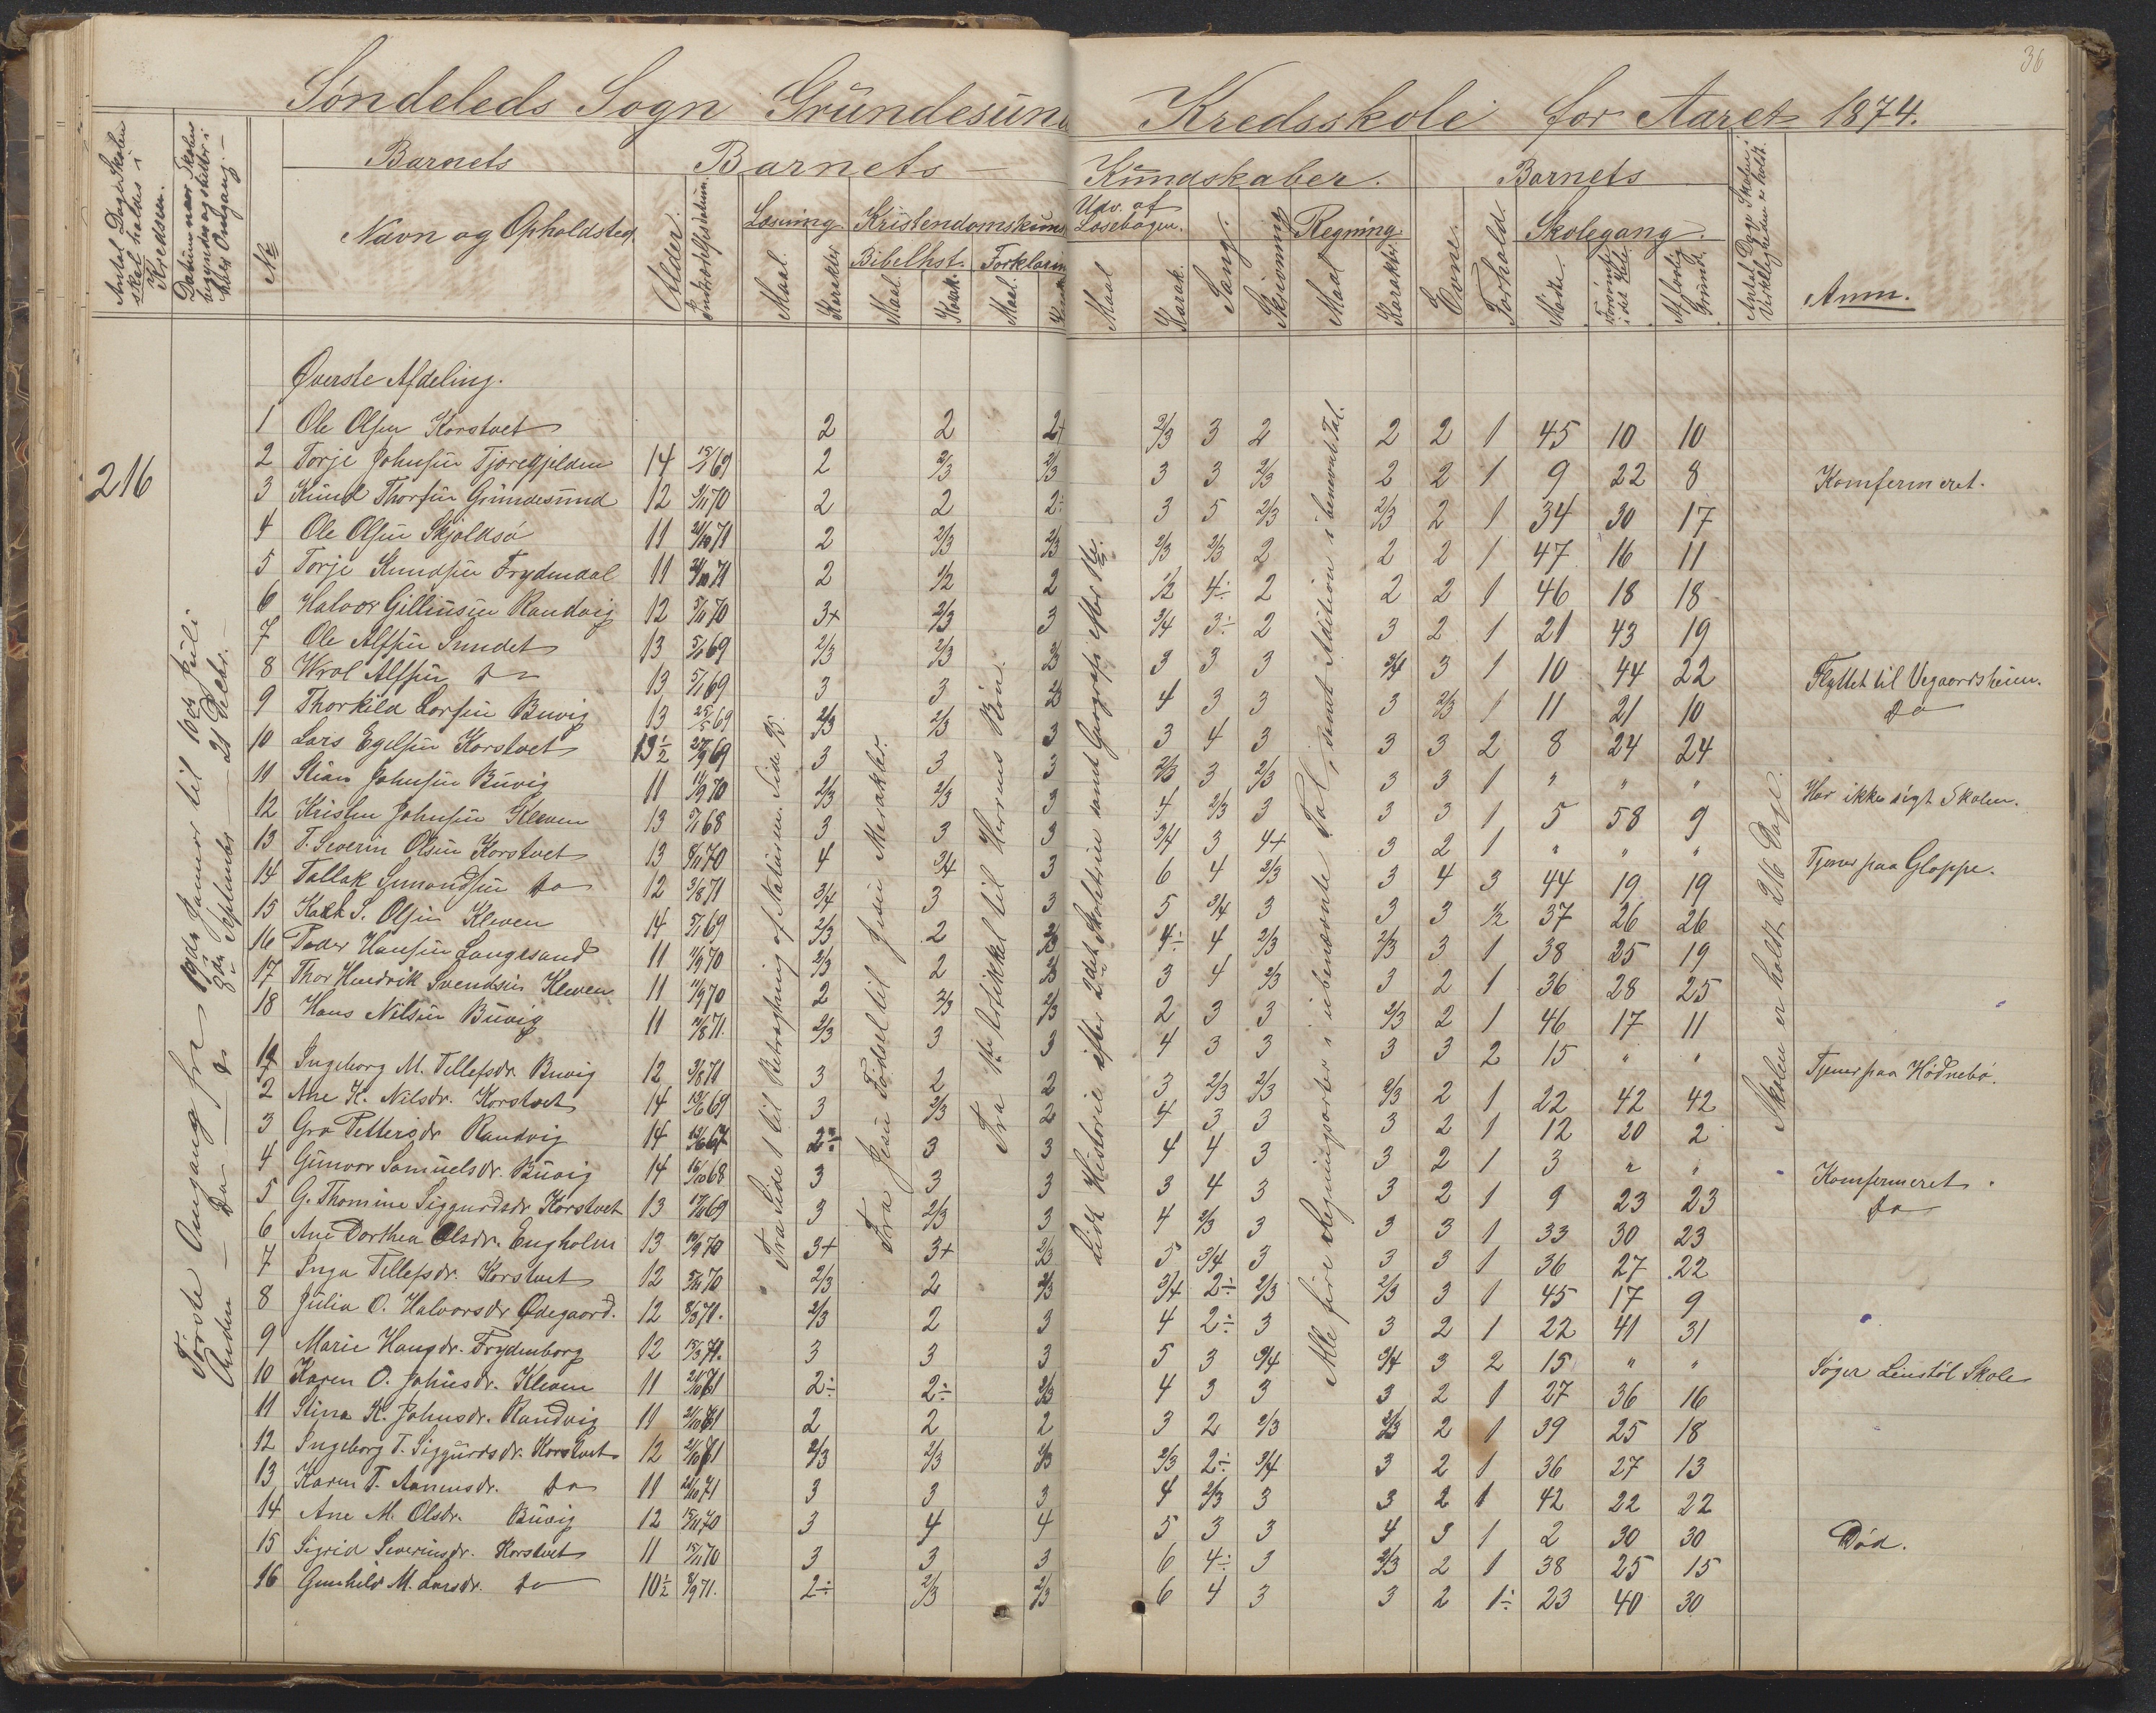 36
Søndeleds Sogn Gründesund Kredsskole for Aaret 1874.
Antal Dage Skolen skal holdes i Kredsen.
Datum naar Skolen begynder og slutter i hver Omgang.
No
Barnets
Navn og Opholdsted.
Barnets Kundskaber.
Alder.
Indtrædelsesdatum.
Læsning
Maal. Karakter
Kristendomskund
Bibelhst. Forklaring
Maal. Karak. Maal.
Udv. af Læsebogen.
Maal Karak.
Sang.
Skrivning
Regning
Maal Karakter
Barnets
Evne. Forhold.
Skolegang.
Mødte. Forsømte i det Hele Af lovlig Grund.
Antal Dage Skolen i Virkeligheden er holdt.
Anm.
216
Første Omgang fra 19de Januar til 16de Juli
Anden Do 8de September 21 Decbr.
Fra Side 1 til Betragtning af Naturen. Side 95.
Fra Jesu Fødsel til Jesu Mirakler.
Fra 1ste Artikkel til Herrens Bøn.
Lidt Historie efter 2det Skoletrin samt Geografi efter do.
Alle fire Regningsarter i ubenævnte Tal, samt Addition i benævnt Tal.
Skolen er holdt 216 Dage.
Øverste Afdeling.
1 Ole Olsen Korstvet 2 2 2+ 2/3 3 2 2 2 1 45 10 10
2 Torje Johnsen Tjorefjelden 14 15/1 69 2 2/3 2/3 3 3 2/3 2 2 1 9 22 8 Komfermeret.
3 Knud Thorsen Gründesund 12 5/11 70 2 2 2÷ 3 5 2/3 2/3 2 1 34 30 17
4 Ole Olsen Skjoldsø 11 21/10 71 2 2/3 2/3 2/3 2/3 2 2 2 1 47 16 11
5 Torje Knudsen Frydendal 11 21/10 71 2 1/2 2 1/2 4÷ 2 2 2 1 46 18 18
6 Halvor Gilliusen Randvig 12 5/11 70 3+ 2/3 3 3/4 3÷ 2 3 2 1 21 43 19
7 Ole Alfsen Sundet 13 5/1 69 2/3 2/3 3 3 3 3/4 3 1 10 44 22 Flyttet til Vegaardsheien.
8 Wrol Alfsen Do 13 5/1 69 3 3 4 3 3 3 2/3 1 11 21 10 Do
9 Thorkild Larsen Buvig 13 25/5 69 2/3 2/3 3 3 4 3 3 3 2 8 24 24
10 Lars Egelsen Korstvet 13 1/2 27/9 69 3 3 3 2/3 3 2/3 3 3 1 " " " Har ikke søgt Skolen.
11 Stian Johnsen Buvig 11 11/9 70 2/3 2/3 3 4 2/3 3 3 3 1 5 58 9
12 Kristen Johnsen Kleven 13 5/1 68 3 3 3 3/4 3 4+ 3 2 1 " " " Tjener paa Gloppe.
13 T. Severin Olsen Korstvet 13 8/11 70 4 3/4 3 6 4 2/3 3 4 3 44 19 19
14 Tallak Simondsen Do 12 3/8 71 3/4 3 3 5 3/4 3 3 3 1/2 37 26 26
15 S. Olsen Kleven 14 5/1 69 2/3 2 2/3 4÷ 4 2/3 2/3 3 1 38 25 19
16 Peder Hansen Langesand 11 11/9 70 2/3 2 2/3 3 4 2/3 3 2 1 36 28 25
17 Thor Hendrik Svendsen Kleven 11 11/9 70 2 2/3 2/3 2 3 3 2/3 2 1 46 17 11
18 Hans Nilsen Buvig 11 11/8 71. 2/3 3 3 4 3 3 3 3 2 15 " " Tjener paa Hødnebø.
1 Ingeborg M. Tellefsdr. Buvig 12 3/8 71 3 2 2 3 2/3 2/3 2/3 2 1 22 42 42
2 Ane K. Nilsdr. Korstvet 14 15/6 69 3 2/3 2 4 3 3 3 2 1 12 20 2
3 Gro Pettersdr Randvig 14 2÷ 3 3 4 4 3 3 2 1 3 " " Komfermeret.
4 Gunvor Samuelsdr. Buvig 14 16/10 68 3 3 3 3 4 3 3 2 1 9 23 23 Do
5 G. Thomine Siggurdsdr Korstvet 13 17/11 69 3 2/3 3 4 2/3 3 3 3 1 33 30 23
6 Ane Dorthea Olsdr. Engholm 13 11/9 70 3+ 3+ 2/3 5 3/4 3 3 3 1 36 27 22
7 Inga Tellefsdr. Korstvet 12 5/11 70 2/3 2 2/3 3/4 2÷ 2/3 2/3 3 1 45 17 9
8 Julia O. Halvorsdr Ødegaard. 12 8/8 71. 2/3 2 3 4 2÷ 3 3 2 1 22 41 31
9 Marie Haugdr. Frydenborg 12 15/3 71. 3 3 3 5 3 3/4 3/4 3 2 15 " " Søger Leustøl Skole
10 Karen O. Johnsdr. Kleven 11 21/10 71 2÷ 2÷ 2/3 4 3 3 3 2 1 27 36 16
11 Stina K. Johnsdr. Randvig 11 21/10 71 2 2 2 3 2 2/3 2/3 2 1 39 25 18
12 Ingeborg T. Siggurdsdr. Korstvet 12 21/10 71 2/3 2/3 2/3 2/3 2÷ 3/4 3 2 1 36 27 13
13 Karen T. Aanensdr. Do 11 21/10 71 3 3 3 4 2/3 3 3 2 1 42 22 22
14 Ane M. Olsdr. Buvig 12 15/11 70 3 4 4 5 3 3 4 3 1 2 30 30 Død.
15 Sigrid Severinsdr. Korstvet 11 15/11 70 3 3 3 6 4÷ 3 2/3 2 1 38 25 15
16 Gunhild M. Larsdr. Do 10 1/2 8/9 71. 2÷ 2/3 2/3 6 4 3 3 2 1÷ 23 40 30